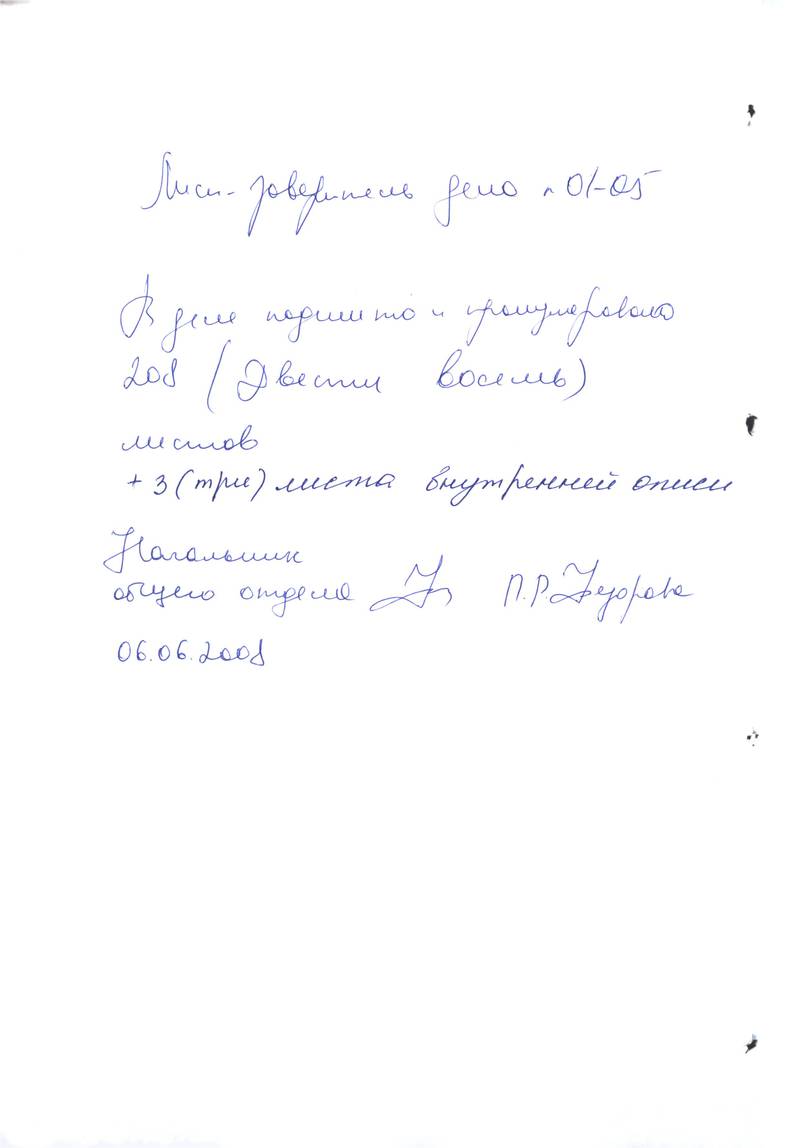 Лист-заверитель дела № 01-05
В деле подшито и пронумеровано
208 (Двести восемь)
листов
+ 3 (три) листа внутренней описи
Начальник
общего отдела П.Р. Федорова
06.06.2008